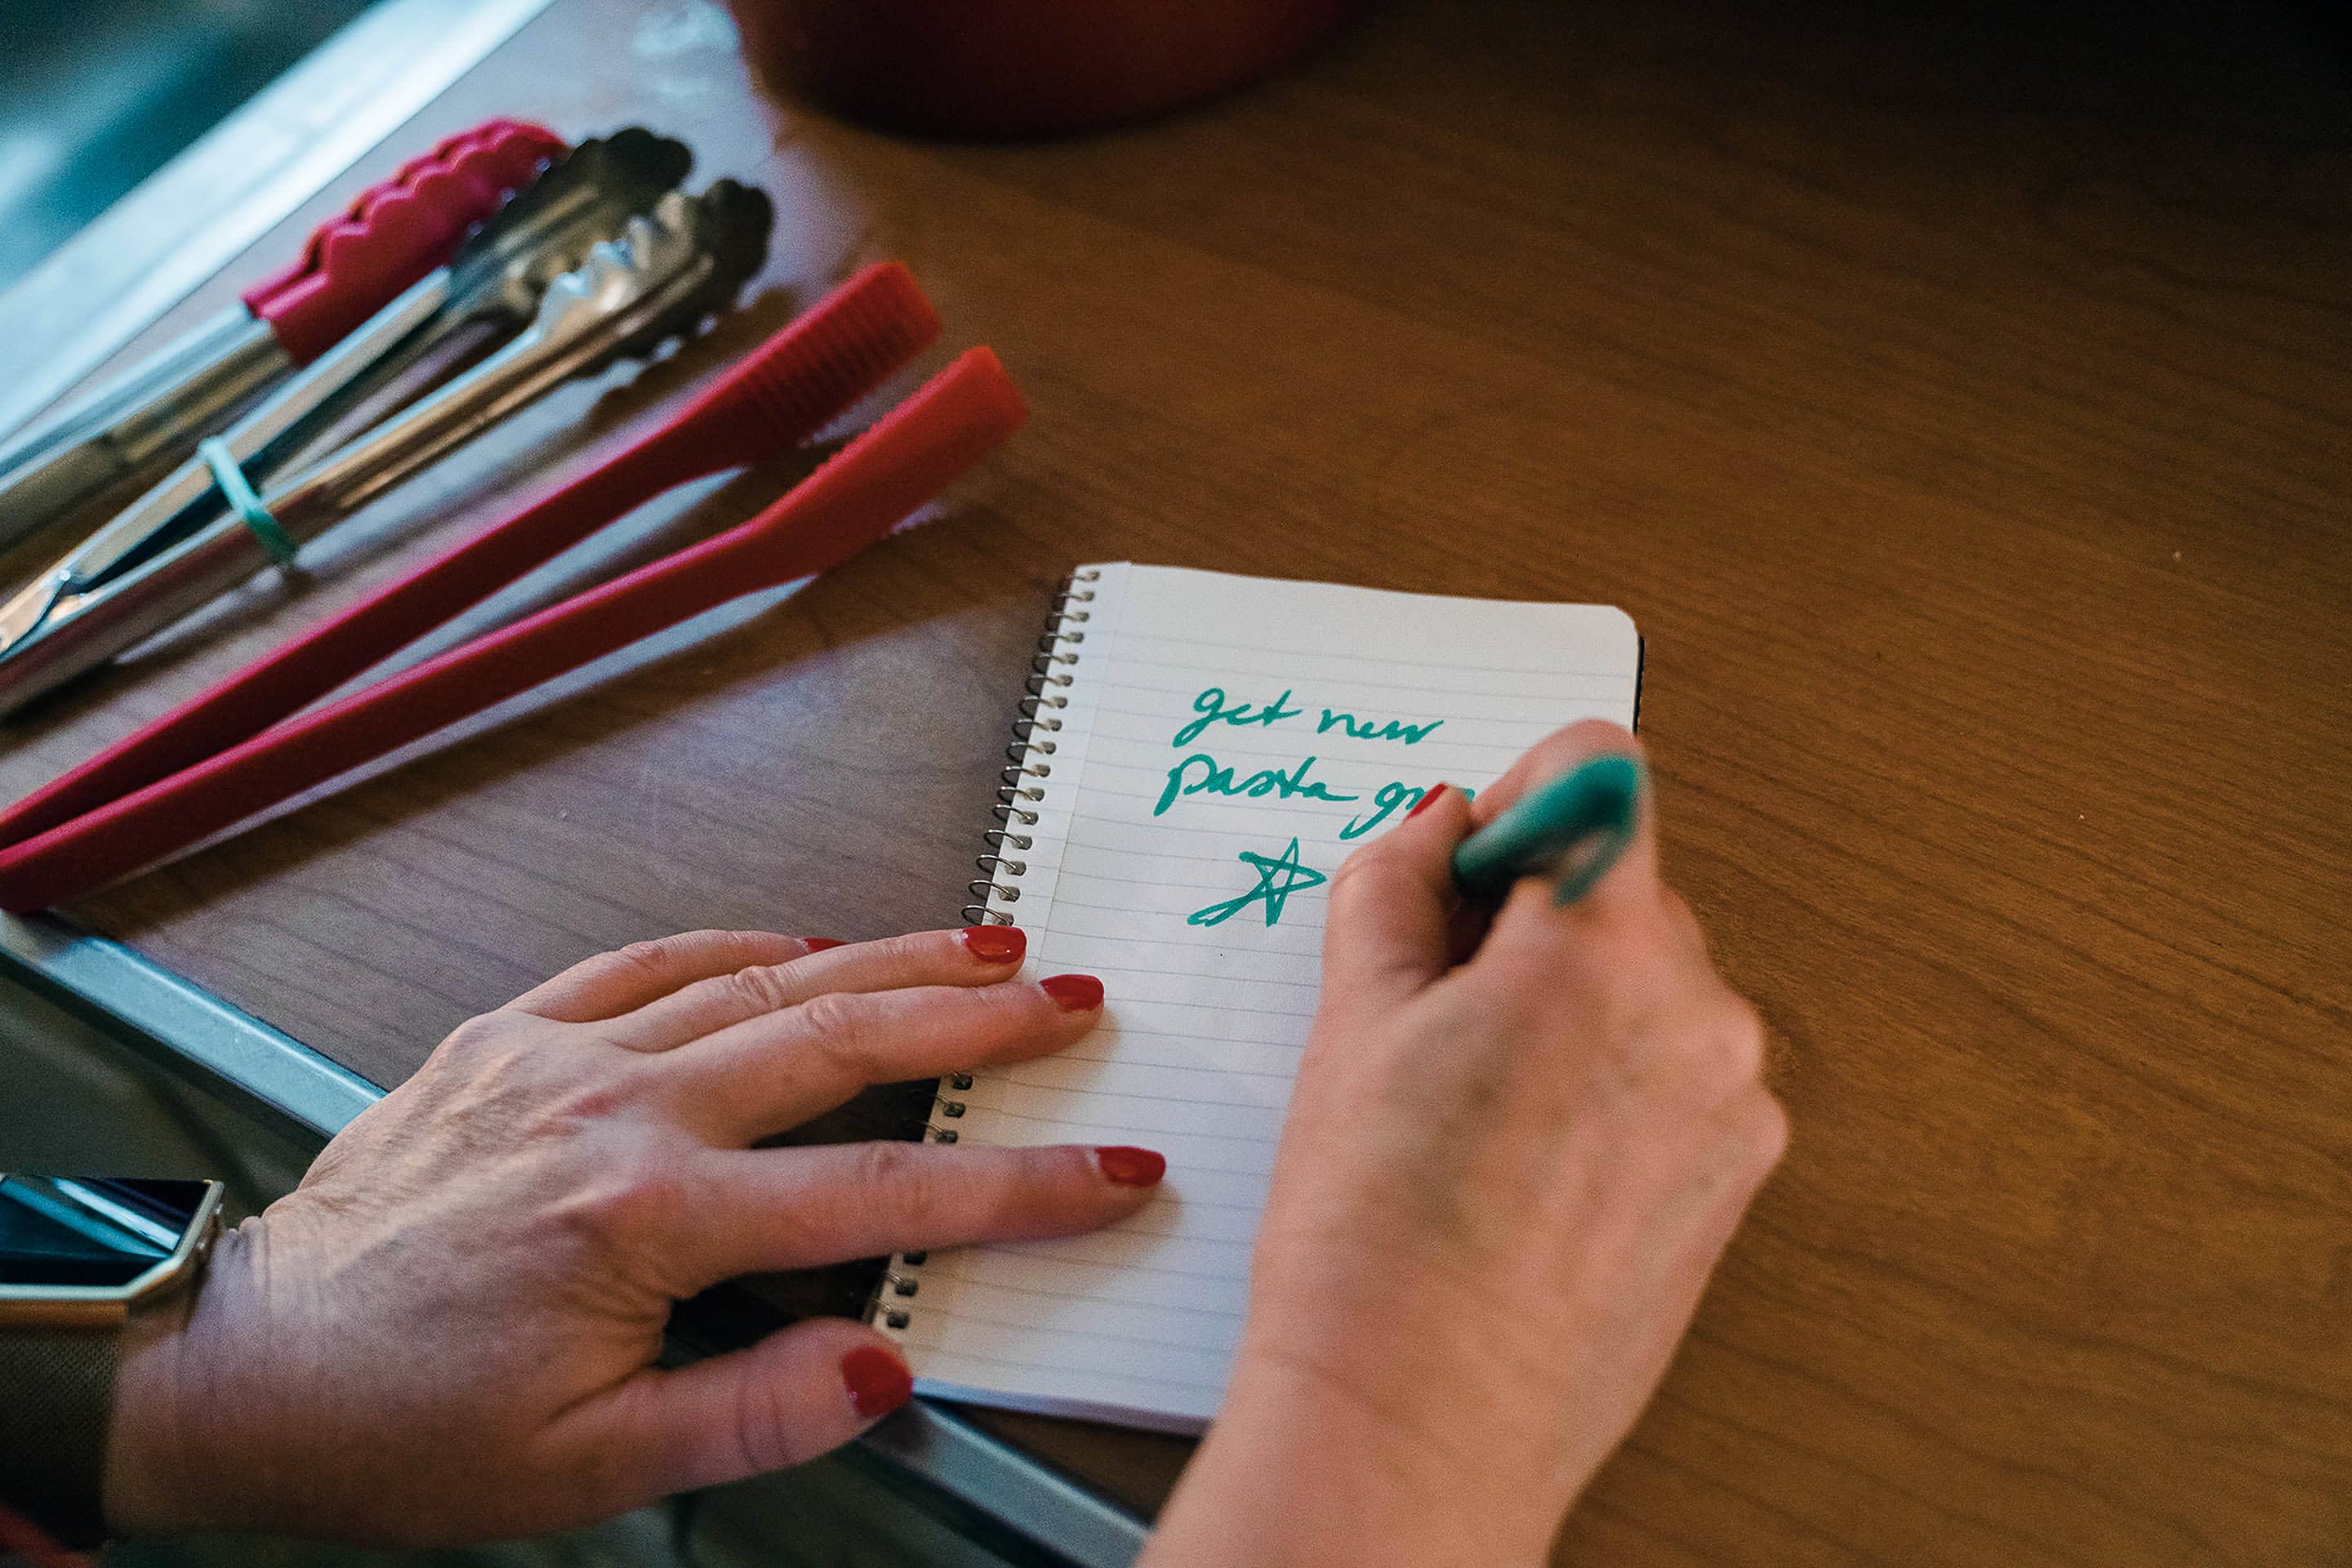 get new
pasta